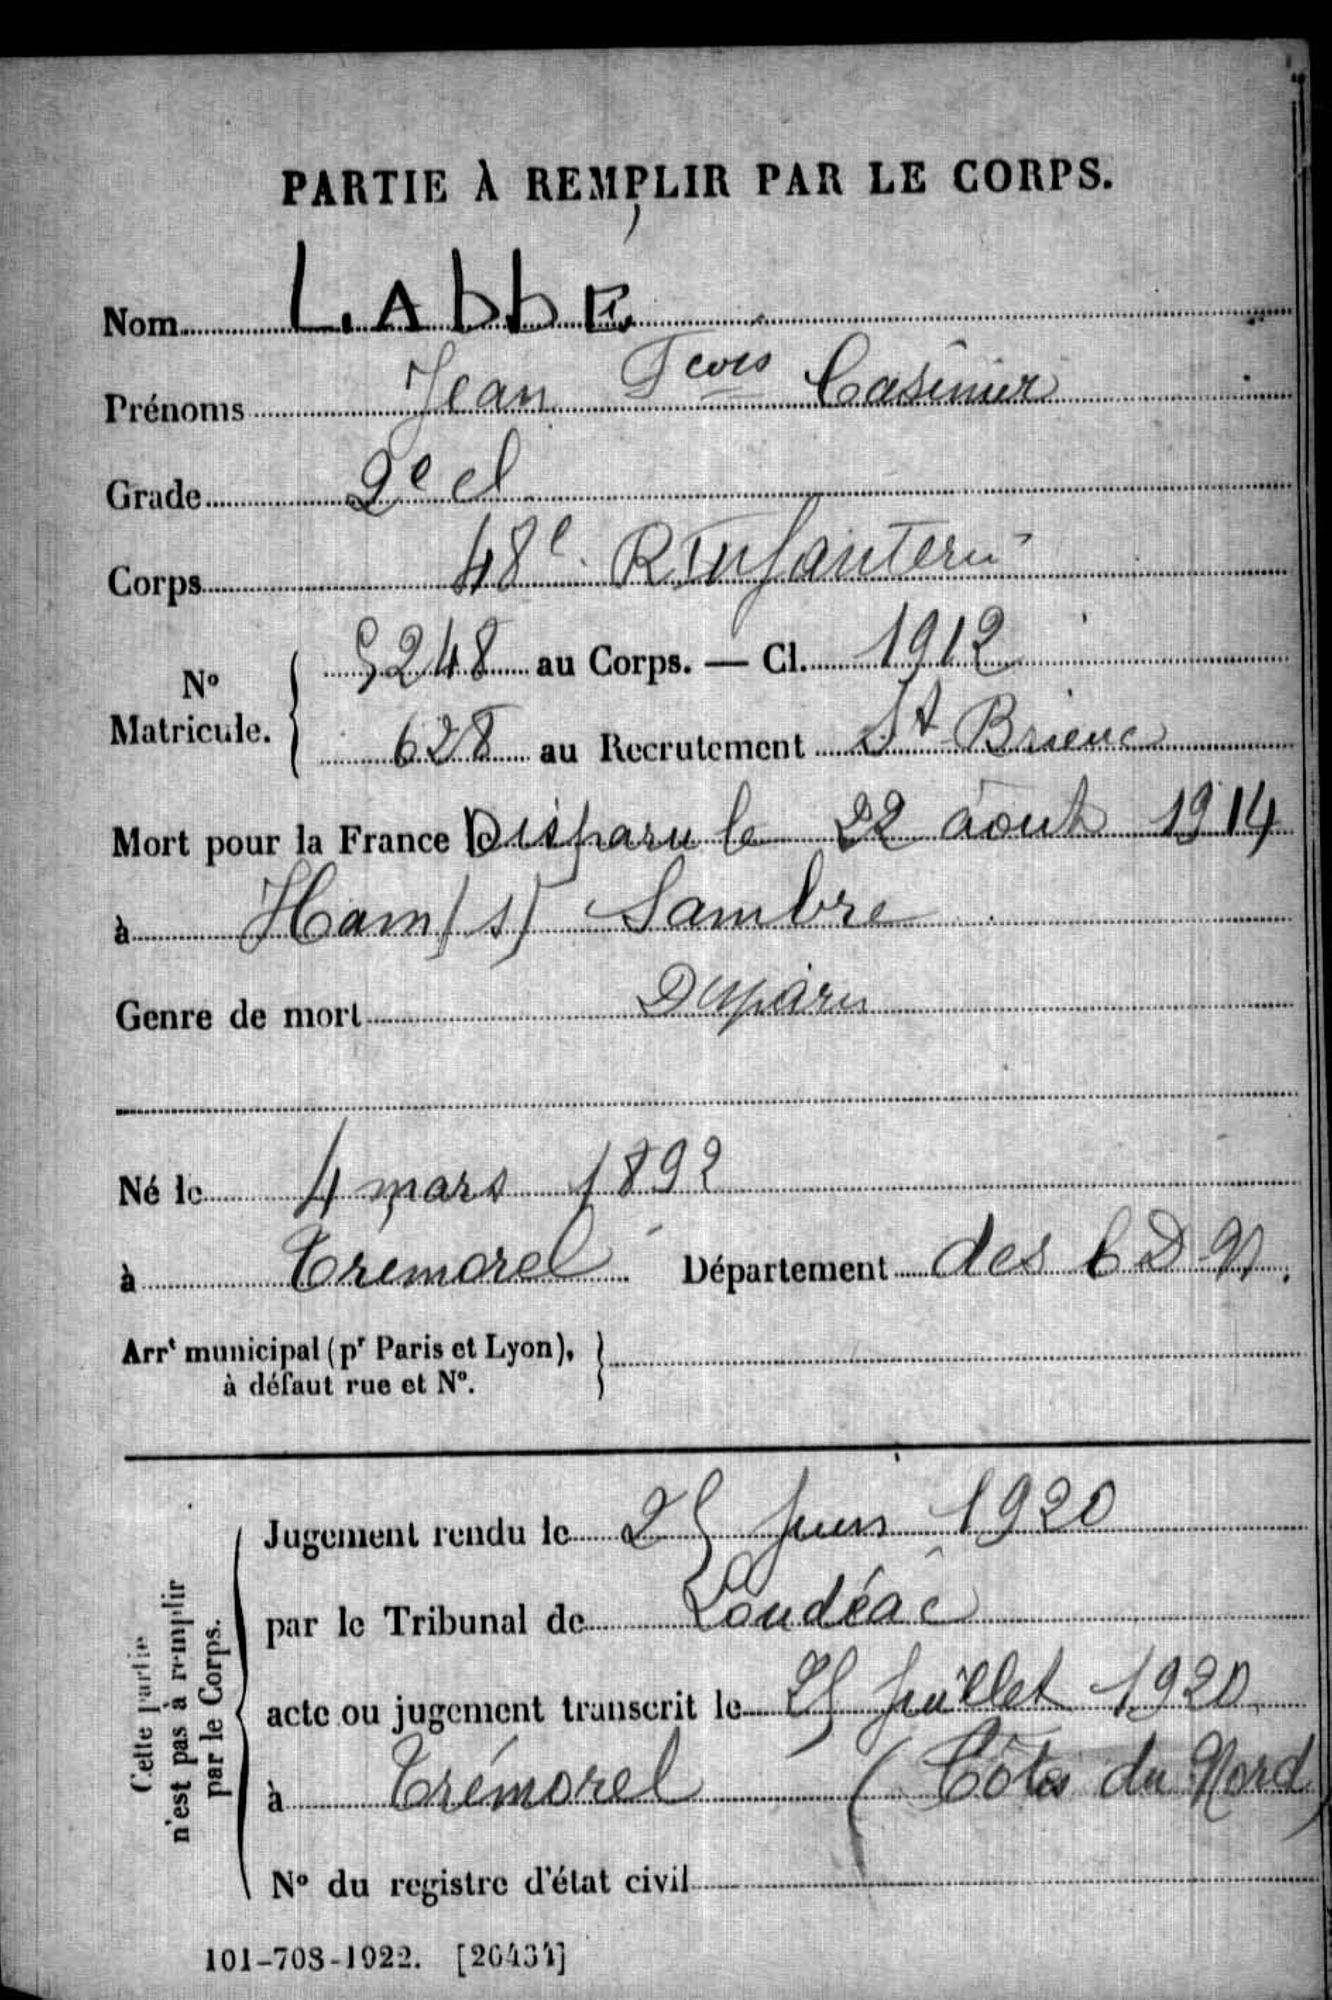 PARTIE À REMPLIR PAR LE CORPS.
Nom LAbbE
Prénoms Jean Fcois Casimir
Grade 2e cl
Corps 48e R Infanterie
No Matricule. 5248 au Corps. — Cl. 1912
628 au Recrutement St Brieuc
Mort pour la France Disparu le 22 août 1914
à Ham (s) Sambre
Genre de mort Disparu
Né le 4 mars 1892
à Trémorel Département des C D N.
Arrt municipal (pr Paris et Lyon),
à défaut rue et No.
Cette partie
n'est pas à remplir
par le Corps.
Jugement rendu le 25 Juin 1920
par le Tribunal de Loudéac
acte ou jugement transcrit le 25 Juillet 1920
à Trémorel (Côtes du Nord)
No du registre d'état civil
101-708-1922. [26434]